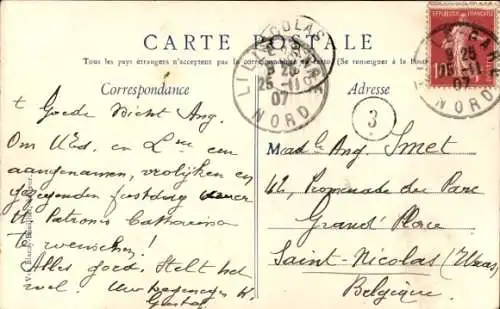 CARTE POSTALE
Tous les pays étrangers n'acceptent pas la correspondance au recto (Se renseigner
Correspondance
Adresse
RÉPUBLIQUE FRANÇAISE
10
LILLE GARE
9 25
25 -11
07
NORD
NICOLAS
GARE
25
25 -11
07
NORD
3
t Goede Nicht Ang.
Om UEd. en Lme een
aangenamen, vrolijken en
feestdag
Uw Patrones Catharina
te wenschen!
Alles goed. Stelt het
wel. Uw
Gustaf
Made Ang. Smet
42, Promenade du Parc
Grand' Place
Saint-Nicolas (Waas)
Belgique.